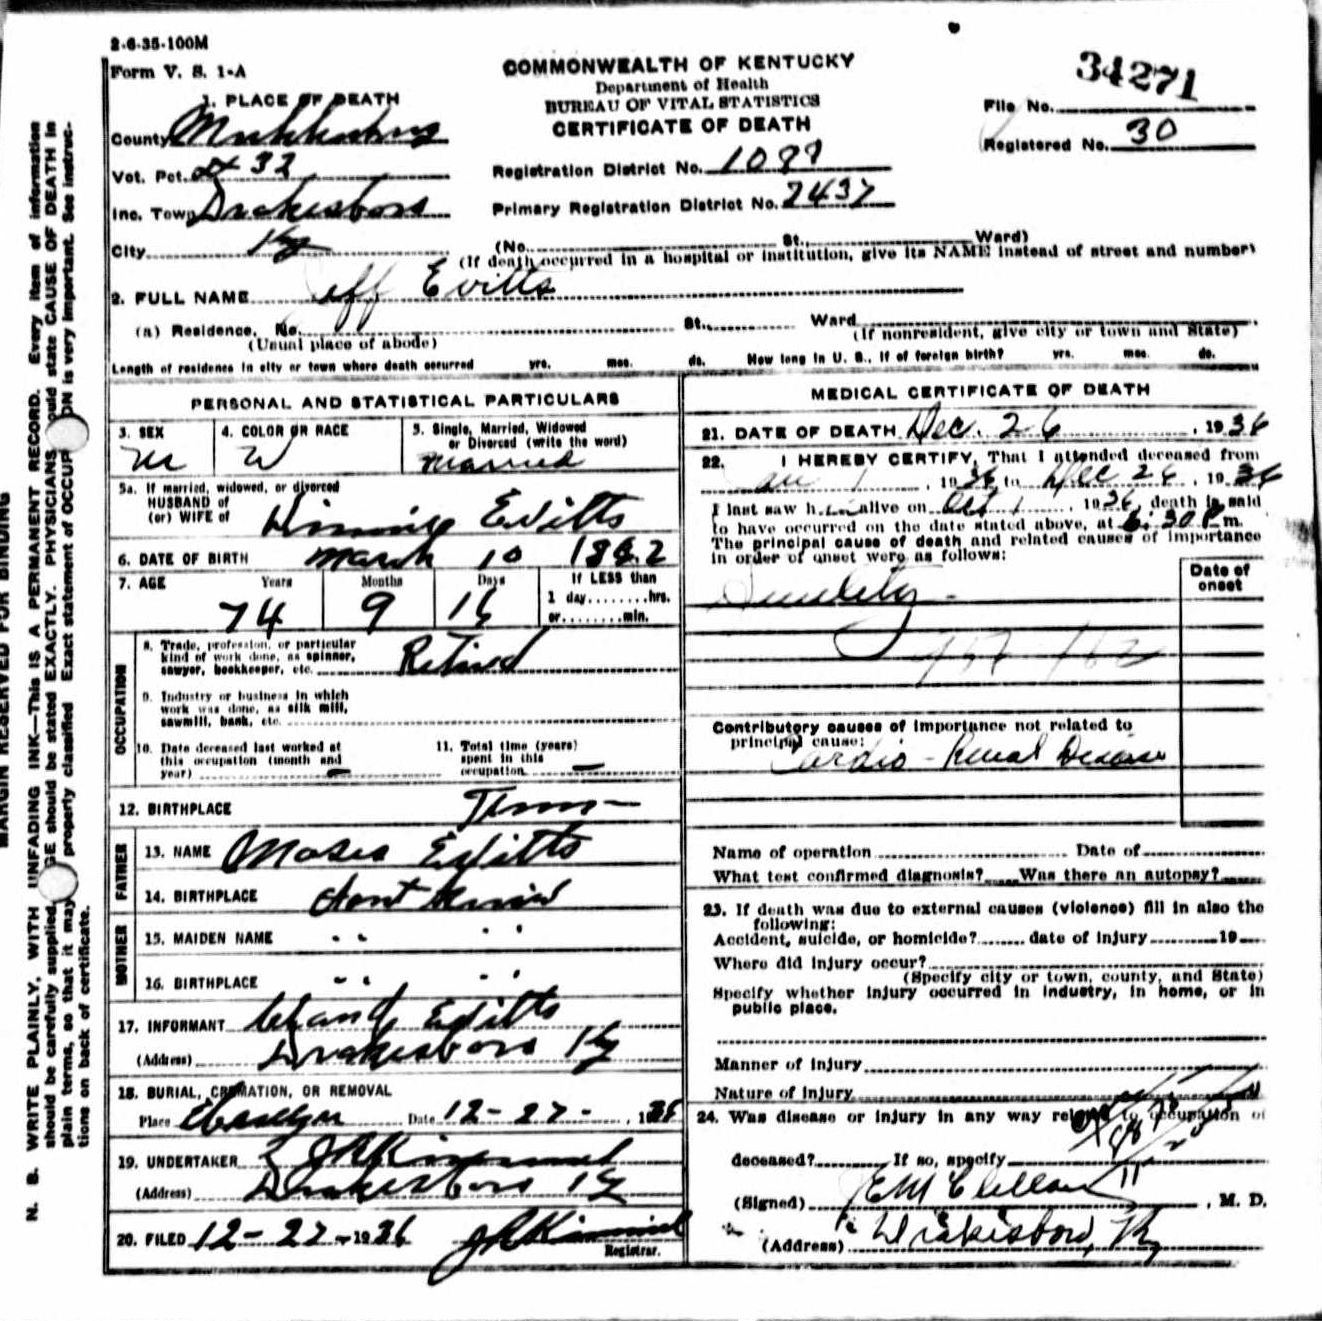 2-6-35-100M
Form V. S. 1-A
COMMONWEALTH OF KENTUCKY
Department of Health
BUREAU OF VITAL STATISTICS
CERTIFICATE OF DEATH
34271
File No.
Registered No. 30
1. PLACE OF DEATH
County Muhlenberg
Vot. Pct. # 32
Inc. Town Drakesboro
City Ky
Registration District No. 1089
Primary Registration District No. 7437
(No. St., Ward)
(If death occurred in a hospital or institution, give its NAME instead of street and number)
2. FULL NAME Jeff Evitts
(a) Residence. No. St., Ward
(Usual place of abode) (If nonresident, give city or town and State)
Length of residence in city or town where death occurred yrs. mos. ds. How long in U. S., if of foreign birth? yrs. mos. ds.
PERSONAL AND STATISTICAL PARTICULARS
3. SEX M
4. COLOR OR RACE W
5. Single, Married, Widowed or Divorced (write the word) Married
5a. If married, widowed, or divorced
HUSBAND of
(or) WIFE of Evitts
6. DATE OF BIRTH March 10 1862
7. AGE Years 74 Months 9 Days 16 If LESS than 1 day........hrs. or........min.
OCCUPATION
8. Trade, profession, or particular
kind of work done, as spinner,
sawyer, bookkeeper, etc. Retired
9. Industry or business in which
work was done, as silk mill,
sawmill, bank, etc.
10. Date deceased last worked at
this occupation (month and
year) –
11. Total time (years)
spent in this
occupation –
12. BIRTHPLACE Tenn –
FATHER
13. NAME Moses Evitts
14. BIRTHPLACE Dont Know
MOTHER
15. MAIDEN NAME " "
16. BIRTHPLACE " "
17. INFORMANT Evitts
(Address) Drakesboro Ky
18. BURIAL, CREMATION, OR REMOVAL
Place Date 12-27-, 1936
19. UNDERTAKER J R Kimmel
(Address) Drakesboro Ky
20. FILED 12-27-1936 J R Kimmel
Registrar.
MEDICAL CERTIFICATE OF DEATH
21. DATE OF DEATH Dec. 26, 1936
22. I HEREBY CERTIFY, That I attended deceased from
Jan 1, 1936 to Dec 26, 1936
I last saw him alive on Oct 1, 1936, death is said
to have occurred on the date stated above, at 6:30 P m.
The principal cause of death and related causes of importance
in order of onset were as follows:
Date of onset
Senility -
Contributory causes of importance not related to
principal cause:
Cardio - Renal Disease
Name of operation Date of
What test confirmed diagnosis? Was there an autopsy?
23. If death was due to external causes (violence) fill in also the
following:
Accident, suicide, or homicide? date of injury 19
Where did injury occur?
(Specify city or town, county, and State)
Specify whether injury occurred in industry, in home, or in
public place.
Manner of injury
Nature of injury
24. Was disease or injury in any way related to occupation of
deceased? If so, specify
(Signed) , M. D.
(Address) Drakesboro, Ky
MARGIN RESERVED FOR BINDING
N. B. WRITE PLAINLY, WITH UNFADING INK—THIS IS A PERMANENT RECORD. Every item of information
should be carefully supplied. AGE should be stated EXACTLY. PHYSICIANS should state CAUSE OF DEATH in
plain terms, so that it may properly classified. Exact statement of OCCUPATION is very important. See instruc-
tions on back of certificate.